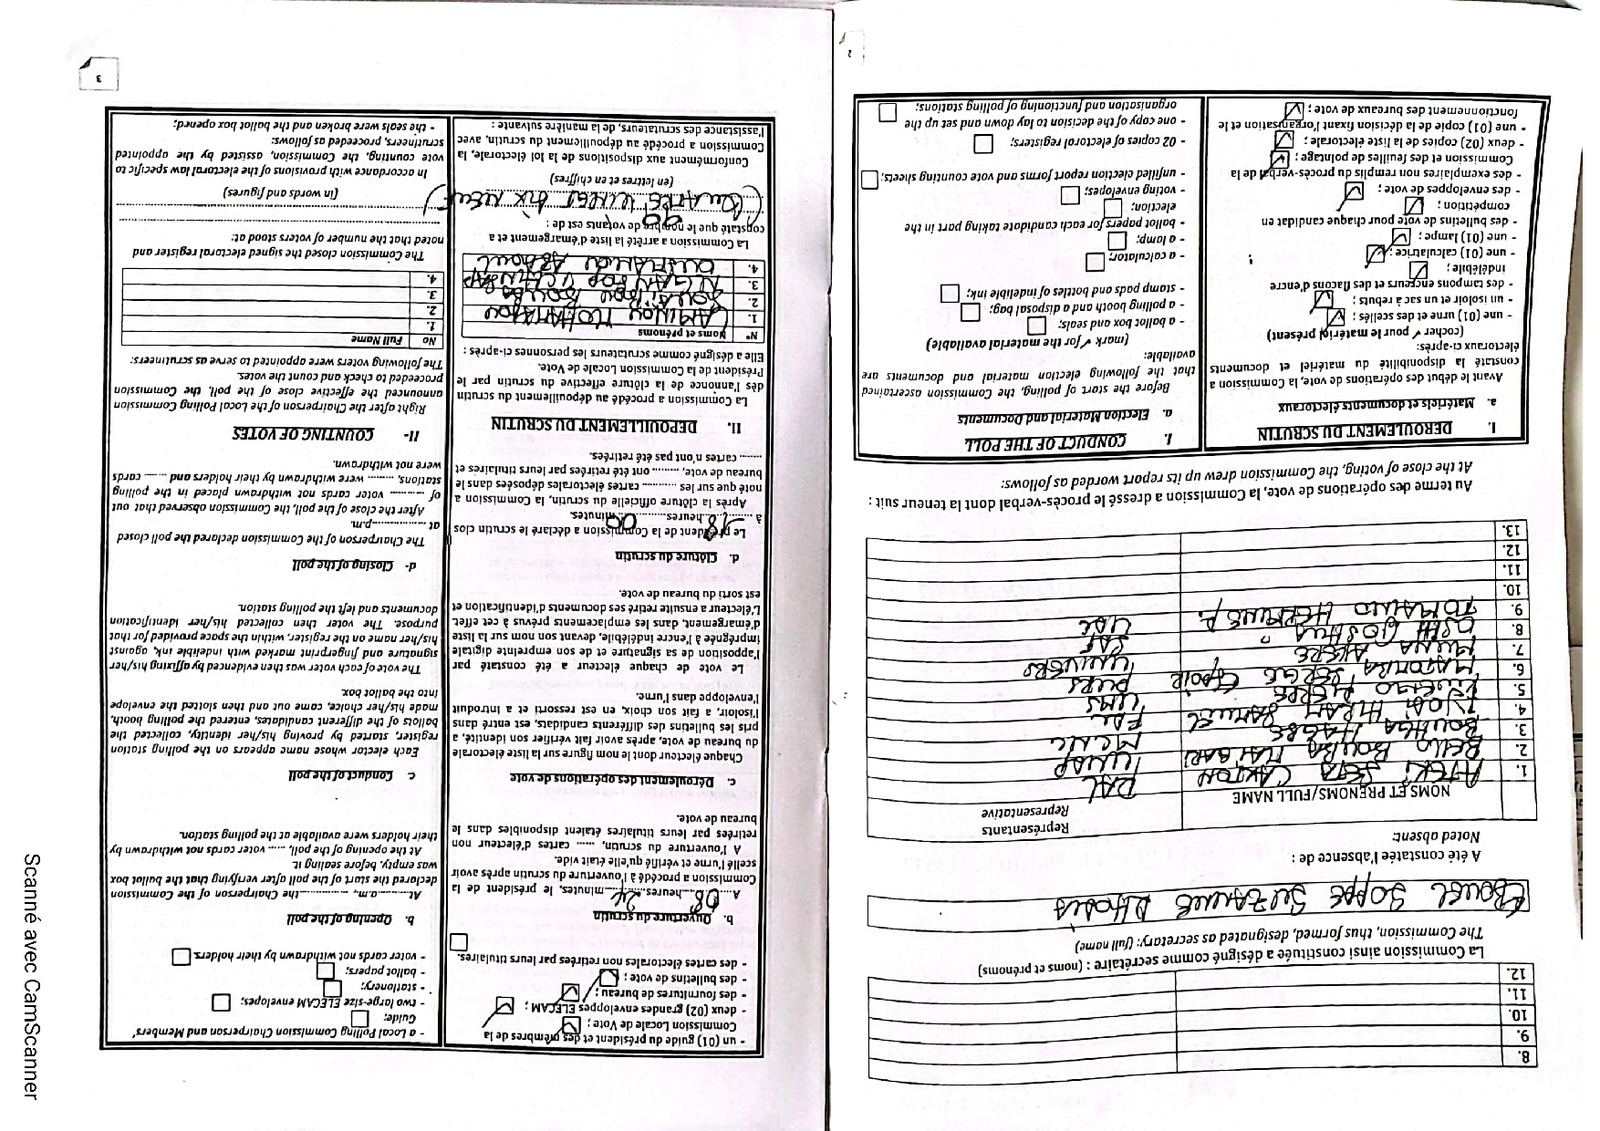 8.
9.
10.
11.
12.
La Commission ainsi constituée a désigné comme secrétaire : (noms et prénoms)
The Commission, thus formed, designated as secretary: (full name)
EBOUEL SOPPE SUZANNE
A été constatée l'absence de :
Noted absent:
NOMS ET PRÉNOMS/FULL NAME
Représentants
Representative
1. CARTON
2. BELLO BOUBA UNDP
3. BOUGHA HAGBE MCNC
4. NJOH HIRAM SAMUEL FDC
5. PIERRE UMS
6. MATOMBA SERGE ESPOIR PURS
7. MUNA AKERE UNIVERS
8. OSIH JOSHUA SDF
9. TOMAINO HERMINE P. UDC
10.
11.
12.
13.
Au terme des opérations de vote, la Commission a dressé le procès-verbal dont la teneur suit :
At the close of voting, the Commission drew up its report worded as follows:
I. DEROULEMENT DU SCRUTIN
a. Matériels et documents électoraux
Avant le début des opérations de vote, la Commission a
constaté la disponibilité du matériel et documents
électoraux ci-après:
(cocher ✓ pour le matériel présent)
- une (01) urne et des scellés ;
- un isoloir et un sac à rebuts ;
- des tampons encreurs et des flacons d'encre
indélébile ;
- une (01) calculatrice ;
- une (01) lampe ;
- des bulletins de vote pour chaque candidat en
compétition ;
- des enveloppes de vote ;
- des exemplaires non remplis du procès-verbal de la
Commission et des feuilles de pointage ;
- deux (02) copies de la liste électorale ;
- une (01) copie de la décision fixant l'organisation et le
fonctionnement des bureaux de vote ;
I. CONDUCT OF THE POLL
a. Election Material and Documents
Before the start of polling, the Commission ascertained
that the following election material and documents are
available:
(mark ✓ for the material available)
- a ballot box and seals;
- a polling booth and a disposal bag;
- stamp pads and bottles of indelible ink;
- a calculator;
- a lamp;
- ballot papers for each candidate taking part in the
election;
- voting envelopes;
- unfilled election report forms and vote counting sheets;
- 02 copies of electoral registers;
- one copy of the decision to lay down and set up the
organisation and functioning of polling stations;
2
- un (01) guide du président et des membres de la
Commission Locale de Vote ;
- deux (02) grandes enveloppes ELECAM ;
- des fournitures de bureau ;
- des bulletins de vote ;
- des cartes électorales non retirées par leurs titulaires.
b. Ouverture du scrutin
A 08 heures 24 minutes, le président de la
Commission a procédé à l'ouverture du scrutin après avoir
scellé l'urne et vérifié qu'elle était vide.
A l'ouverture du scrutin, ...... cartes d'électeur non
retirées par leurs titulaires étaient disponibles dans le
bureau de vote.
c. Déroulement des opérations de vote
Chaque électeur dont le nom figure sur la liste électorale
du bureau de vote, après avoir fait vérifier son identité, a
pris les bulletins des différents candidats, est entré dans
l'isoloir, a fait son choix, en est ressorti et a introduit
l'enveloppe dans l'urne.
Le vote de chaque électeur a été constaté par
l'apposition de sa signature et de son empreinte digitale
imprégnée à l'encre indélébile, devant son nom sur la liste
d'émargement, dans les emplacements prévus à cet effet.
L'électeur a ensuite retiré ses documents d'identification et
est sorti du bureau de vote.
d. Clôture du scrutin
Le président de la Commission a déclaré le scrutin clos
à 18 heures 00 minutes.
Après la clôture officielle du scrutin, la Commission a
noté que sur les ......... cartes électorales déposées dans le
bureau de vote, ......... ont été retirées par leurs titulaires et
......... cartes n'ont pas été retirées.
II. DEPOUILLEMENT DU SCRUTIN
La Commission a procédé au dépouillement du scrutin
dès l'annonce de la clôture effective du scrutin par le
Président de la Commission Locale de Vote.
Elle a désigné comme scrutateurs les personnes ci-après :
N° Noms et prénoms
1. LAMINOU MOHAMADOU
2. BOUBA
3.
4. ABDOUL
La Commission a arrêté la liste d'émargement et a
constaté que le nombre de votants est de :
99
(QUATRE VINGT DIX NEUF)
(en lettres et en chiffres)
Conformément aux dispositions de la loi électorale, la
Commission a procédé au dépouillement du scrutin, avec
l'assistance des scrutateurs, de la manière suivante :
- a Local Polling Commission Chairperson and Members'
Guide;
- two large-size ELECAM envelopes;
- stationery;
- ballot papers;
- voter cards not withdrawn by their holders.
b. Opening of the poll
At.........a.m. ...............the Chairperson of the Commission
declared the start of the poll after verifying that the ballot box
was empty, before sealing it.
At the opening of the poll, ...... voter cards not withdrawn by
their holders were available at the polling station.
c. Conduct of the poll
Each elector whose name appears on the polling station
register, started by proving his/her identity, collected the
ballots of the different candidates, entered the polling booth,
made his/her choice, come out and then slotted the envelope
into the ballot box.
The vote of each voter was then evidenced by affixing his/her
signature and fingerprint marked with indelible ink, against
his/her name on the register, within the space provided for that
purpose. The voter then collected his/her identification
documents and left the polling station.
d- Closing of the poll
The Chairperson of the Commission declared the poll closed
at ..................p.m.
After the close of the poll, the Commission observed that out
of ......... voter cards not withdrawn placed in the polling
stations, ......... were withdrawn by their holders and ...... cards
were not withdrawn.
II- COUNTING OF VOTES
Right after the Chairperson of the Local Polling Commission
announced the effective close of the poll, the Commission
proceeded to check and count the votes.
The following voters were appointed to serve as scrutineers:
No Full Name
1.
2.
3.
4.
The Commission closed the signed electoral register and
noted that the number of voters stood at:
(in words and figures)
In accordance with provisions of the electoral law specific to
vote counting, the Commission, assisted by the appointed
scrutineers, proceeded as follows:
- the seals were broken and the ballot box opened;
3
Scanné avec CamScanner